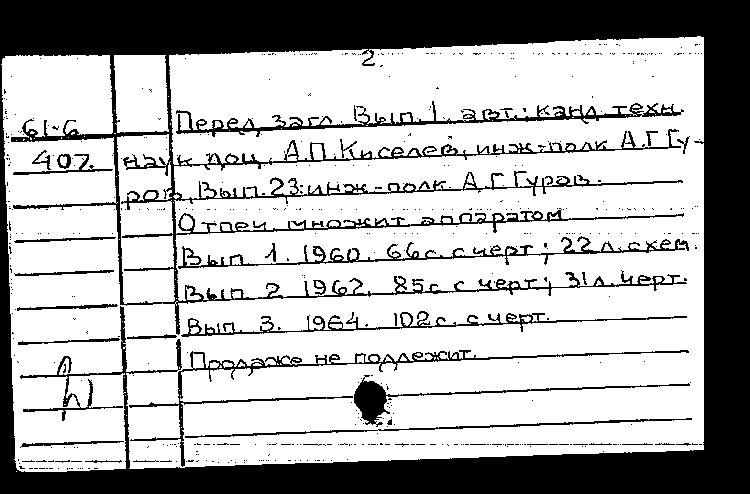 2.
61-6 Перед загл. Вып. 1, авт.: канд. техн.
407. наук доц. А.П. Киселев, инж-полк А.Г. Гу-
ров, Вып. 2,3: инж-полк А.Г. Гуров.
Отпеч. множит. аппаратом
Вып. 1. 1960. 66 с. с черт.; 22 л. схем.
Вып. 2 1962. 85 с с черт.; 31 л. черт.
Вып. 3. 1964. 102 с. с черт.
Продаже не подлежит.